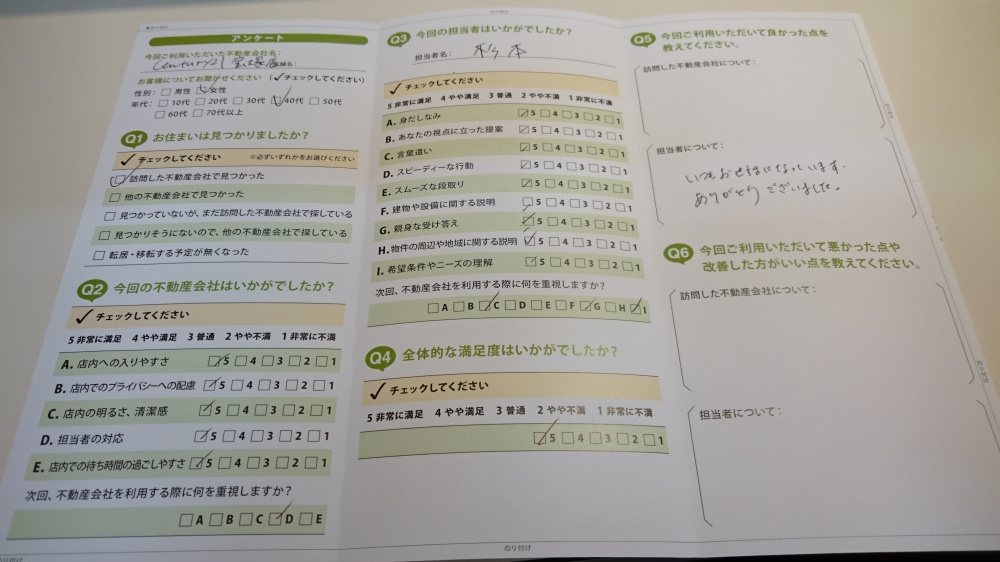 アンケート
今回ご利用いただいた不動産会社名：
Century21
お客様についてお聞かせください（✓チェックしてください）
性別： □ 男性 ☑ 女性
年代： □ 10代 □ 20代 □ 30代 ☑ 40代 □ 50代
□ 60代 □ 70代以上
Q1 お住まいは見つかりましたか？
✓ チェックしてください ※必ずいずれかをお選びください
☑ 訪問した不動産会社で見つかった
□ 他の不動産会社で見つかった
□ 見つかっていないが、まだ訪問した不動産会社で探している
□ 見つかりそうにないので、他の不動産会社で探している
□ 転居・移転する予定が無くなった
Q2 今回の不動産会社はいかがでしたか？
✓ チェックしてください
5 非常に満足 4 やや満足 3 普通 2 やや不満 1 非常に不満
A. 店内への入りやすさ ☑5 □4 □3 □2 □1
B. 店内でのプライバシーへの配慮 ☑5 □4 □3 □2 □1
C. 店内の明るさ、清潔感 ☑5 □4 □3 □2 □1
D. 担当者の対応 ☑5 □4 □3 □2 □1
E. 店内での待ち時間の過ごしやすさ ☑5 □4 □3 □2 □1
次回、不動産会社を利用する際に何を重視しますか？
□A □B □C ☑D □E
Q3 今回の担当者はいかがでしたか？
担当者名： 杉本
✓ チェックしてください
5 非常に満足 4 やや満足 3 普通 2 やや不満 1 非常に不満
A. 身だしなみ ☑5 □4 □3 □2 □1
B. あなたの視点に立った提案 ☑5 □4 □3 □2 □1
C. 言葉遣い ☑5 □4 □3 □2 □1
D. スピーディーな行動 ☑5 □4 □3 □2 □1
E. スムーズな段取り ☑5 □4 □3 □2 □1
F. 建物や設備に関する説明 ☑5 □4 □3 □2 □1
G. 親身な受け答え ☑5 □4 □3 □2 □1
H. 物件の周辺や地域に関する説明 ☑5 □4 □3 □2 □1
I. 希望条件やニーズの理解 ☑5 □4 □3 □2 □1
次回、不動産会社を利用する際に何を重視しますか？
□A □B ☑C □D □E □F ☑G □H ☑I
Q4 全体的な満足度はいかがでしたか？
✓ チェックしてください
5 非常に満足 4 やや満足 3 普通 2 やや不満 1 非常に不満
☑5 □4 □3 □2 □1
のり付け
Q5 今回ご利用いただいて良かった点を
教えてください。
訪問した不動産会社について：
担当者について：
いつもお世話になっています。
ありがとうございました。
Q6 今回ご利用いただいて悪かった点や
改善した方がいい点を教えてください。
訪問した不動産会社について：
担当者について：
のり付け